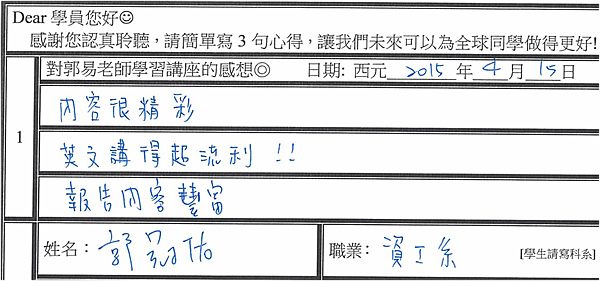 Dear 學員您好☺
感謝您認真聆聽，請簡單寫 3 句心得，讓我們未來可以為全球同學做得更好!
對郭易老師學習講座的感想◎ 日期: 西元 2015 年 4 月 15 日
1
內容很精彩
英文講得超流利!!
報告內容豐富
姓名：郭 佑 職業：資工系 [學生請寫科系]